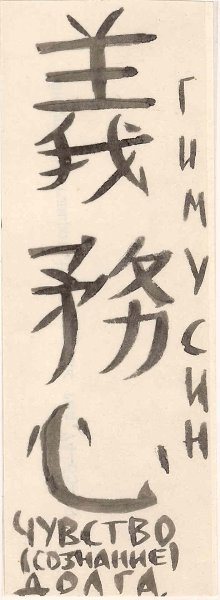 義務心
ГИМУСИН
ЧУВСТВО
(СОЗНАНИЕ)
ДОЛГА.